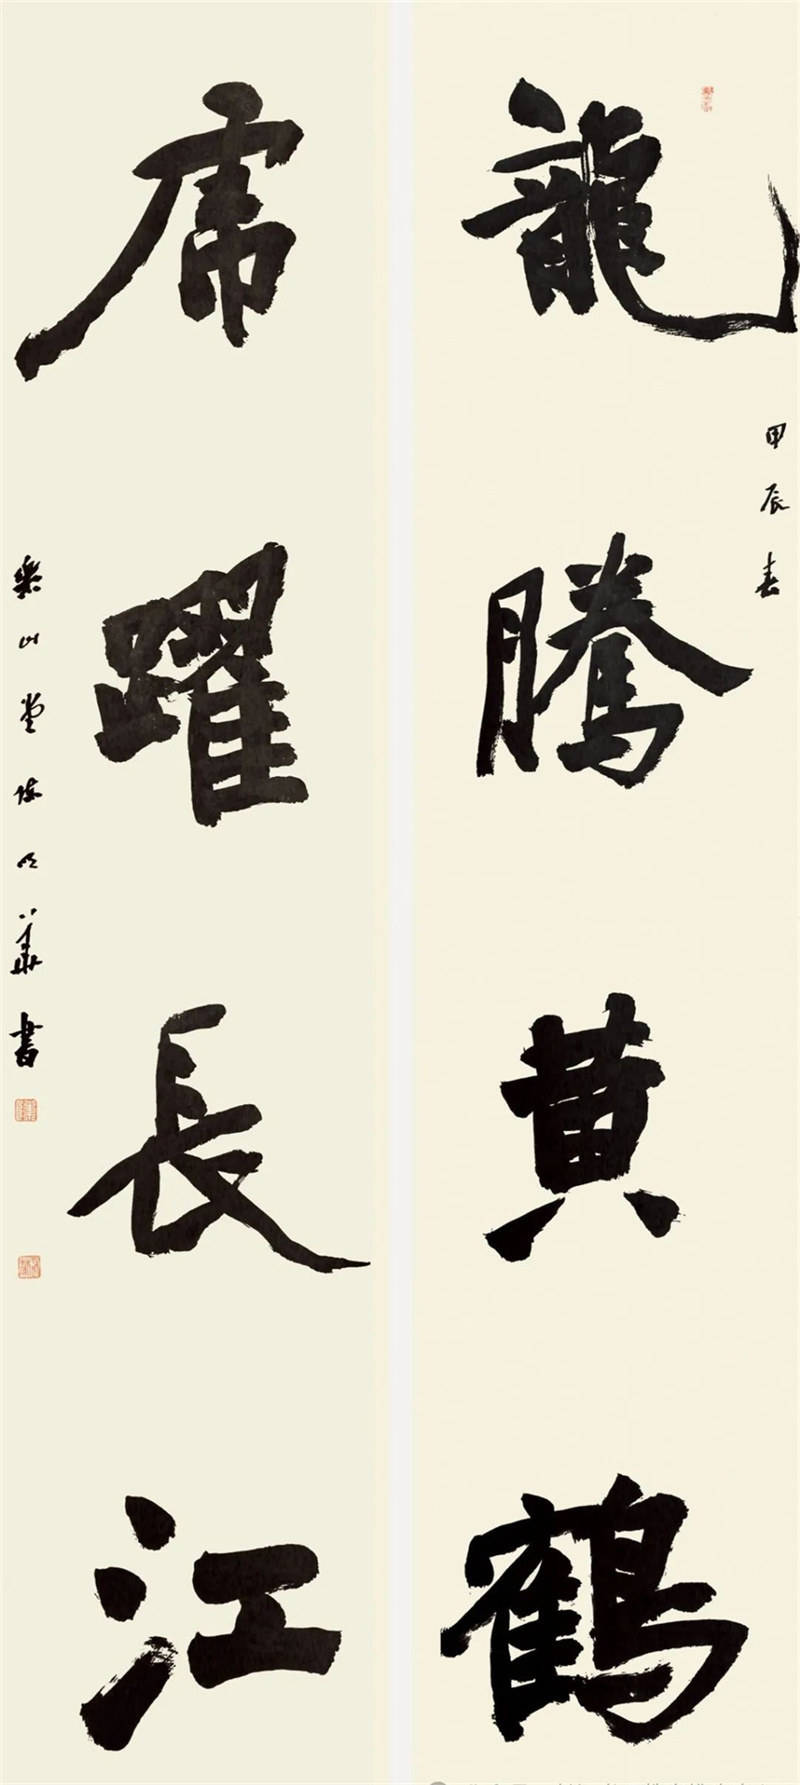 龍騰黄鶴
甲辰春
虎躍長江
樂山堂 華書